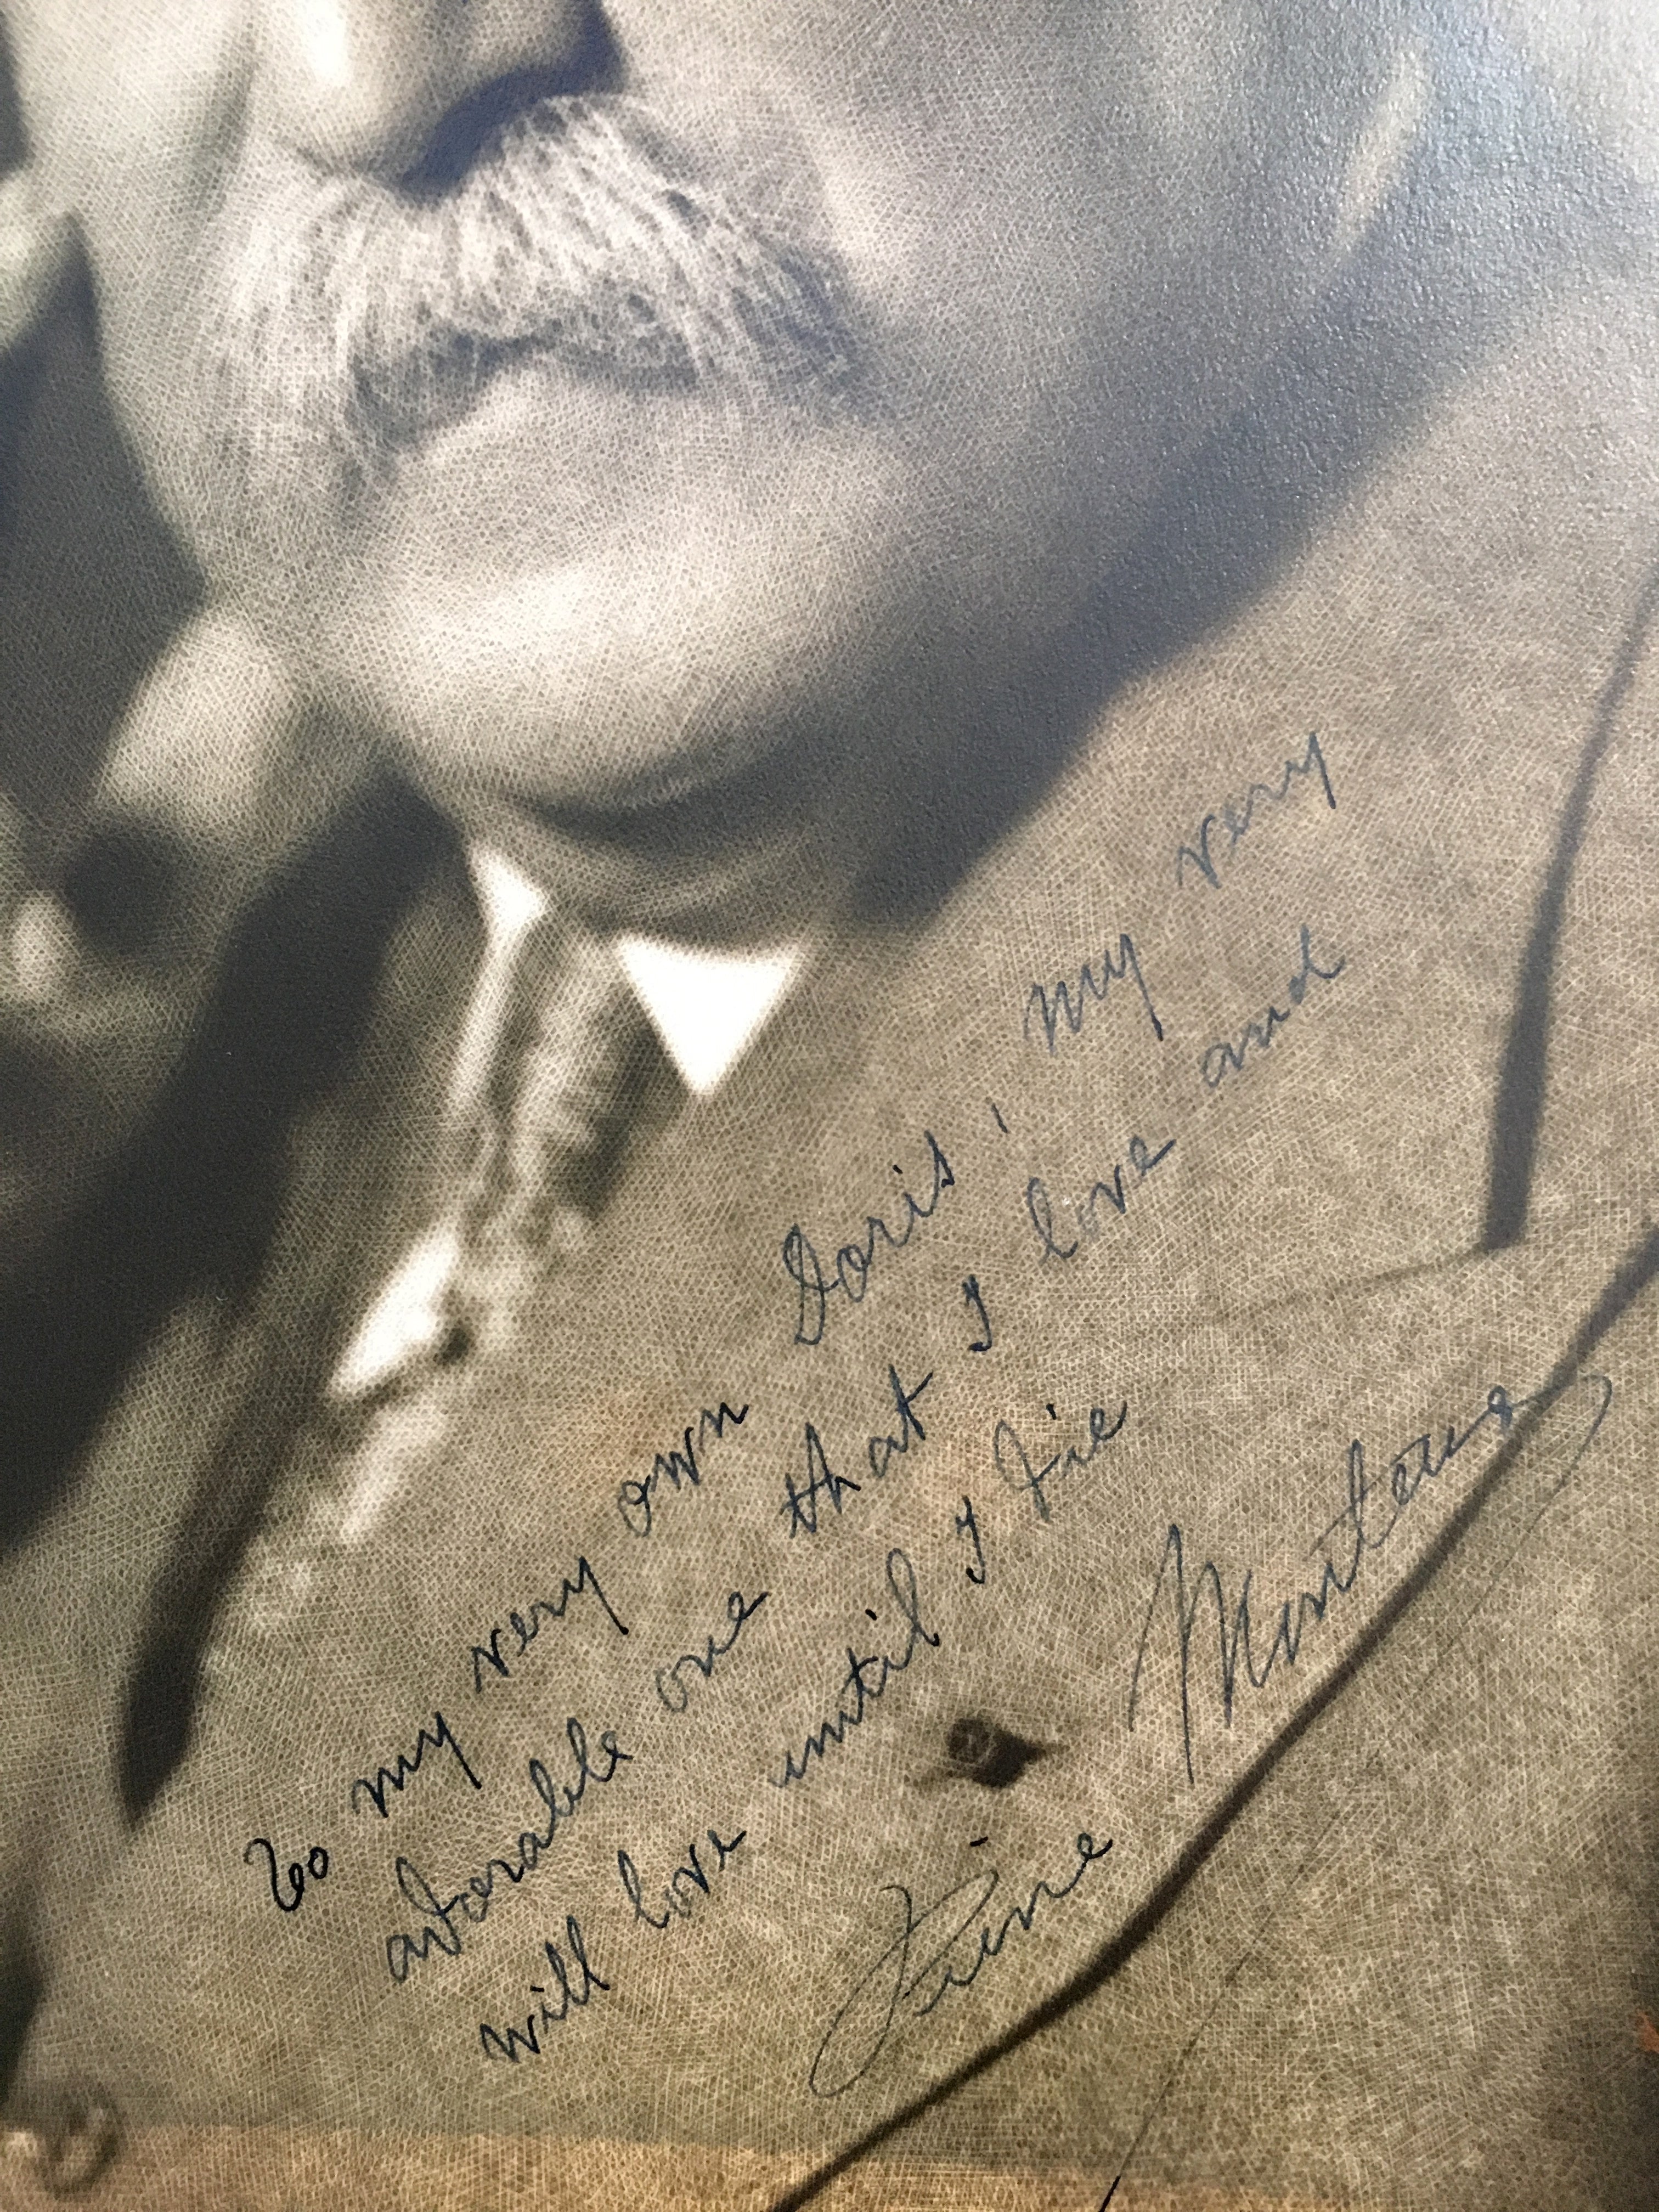 To my very own Doris, my very
adorable one that I love and
will love until I die
Pierre Monteux